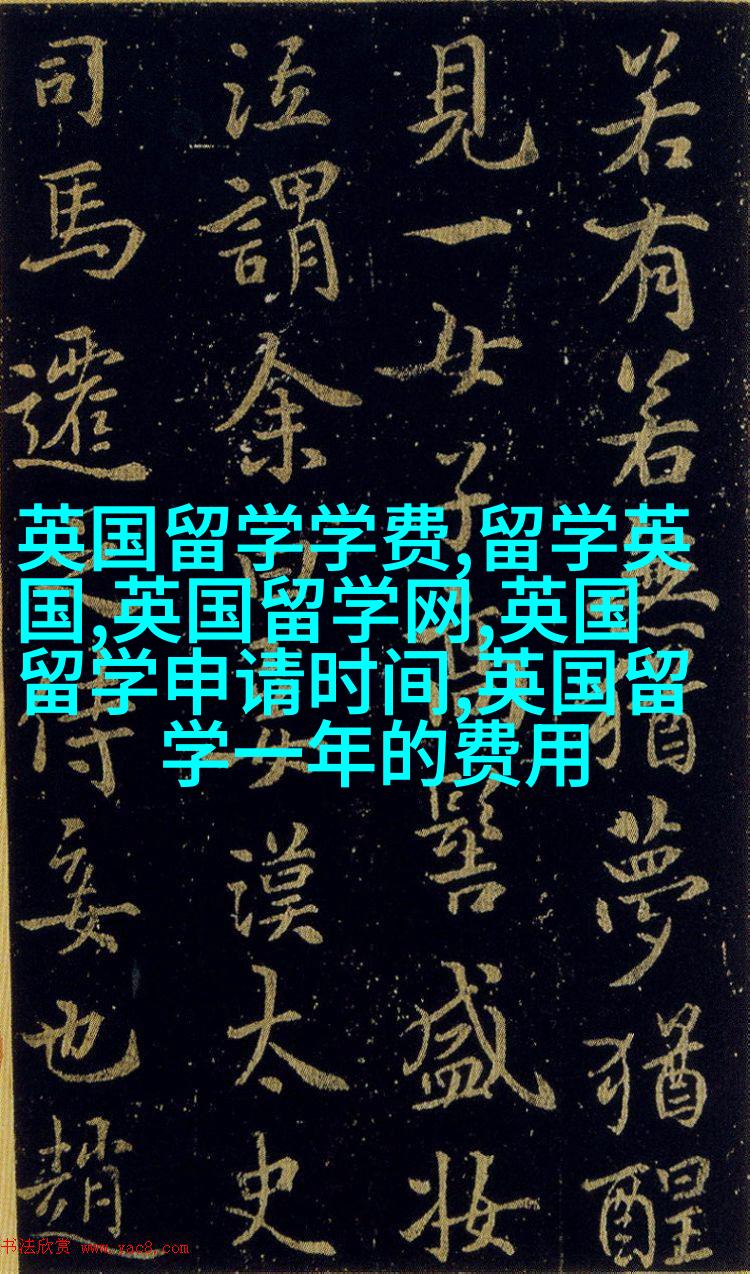 若有若無猶夢猶醒
見一女子高髻盛妝
泣謂余曰妾漢太史
司馬遷之侍妾也趙
英国留学学费,留学英
国,英国留学网,英国
留学申请时间,英国留
学一年的费用
书法欣赏 www.yac8.com